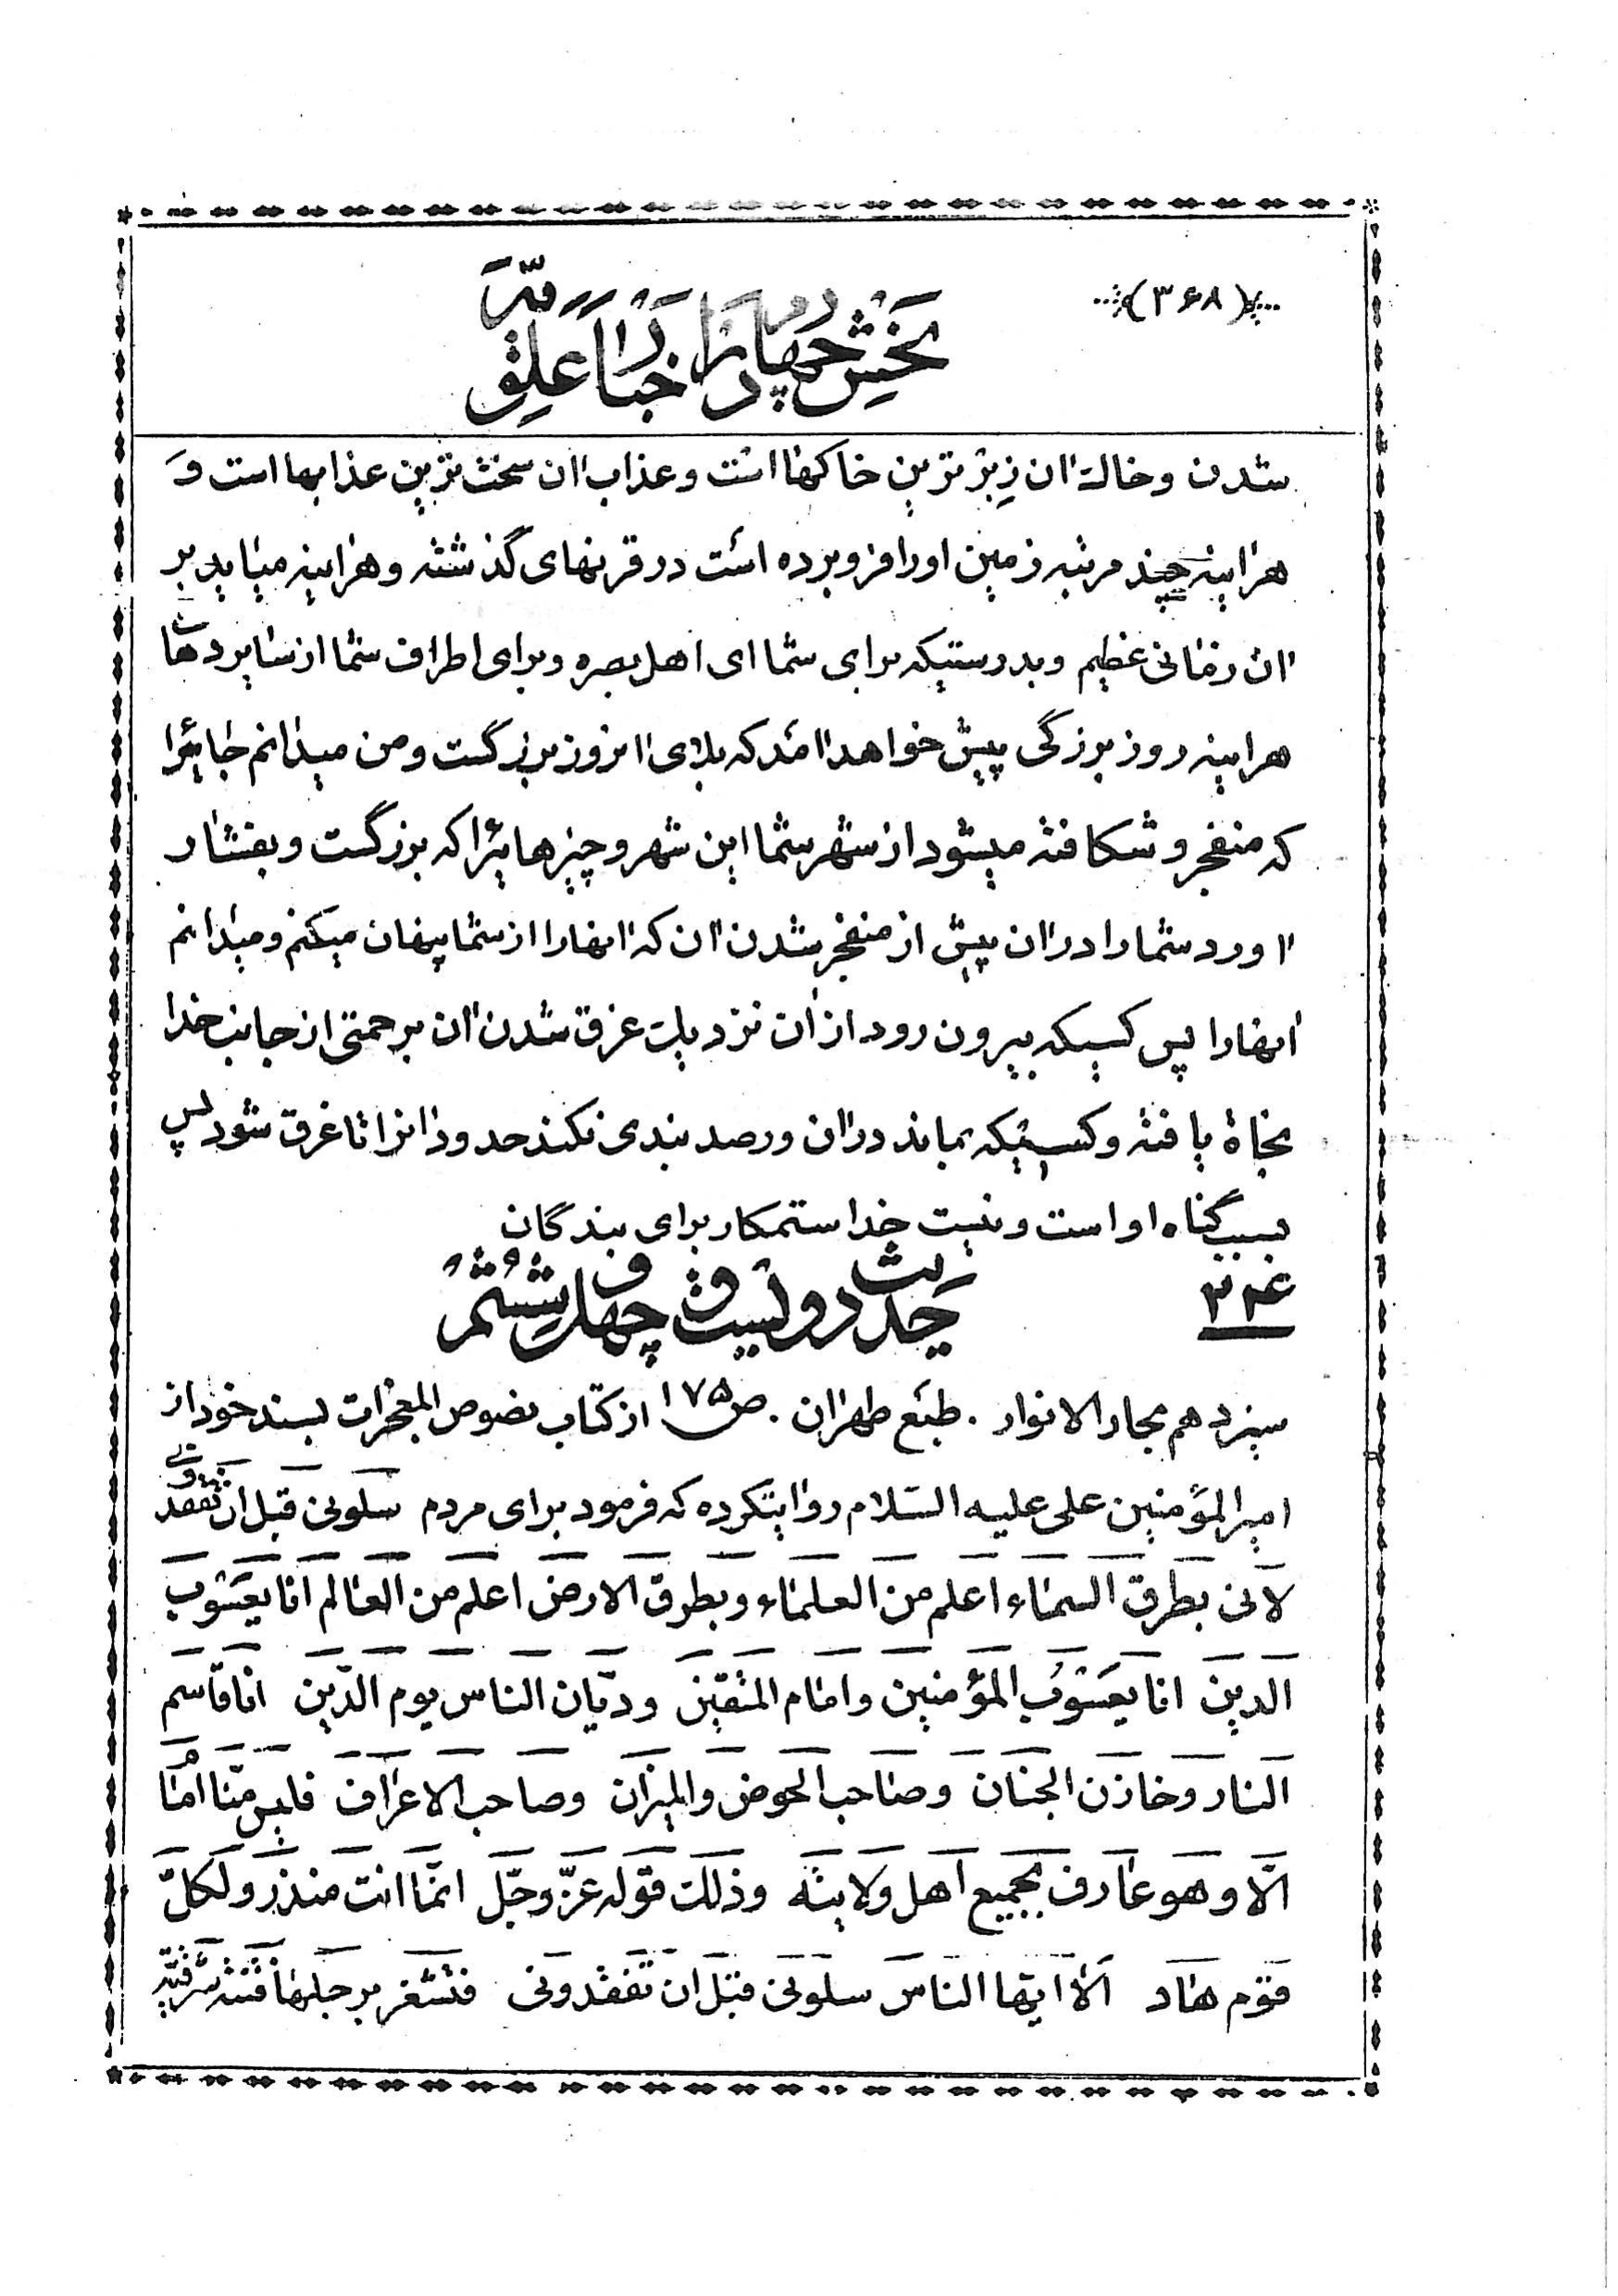 (۳۶۸)
بخش چهارم در اخبار علویه
شدن و خاک ان زبرترین خاکها است و عذاب ان سخت ترین عذابها است و
هراینه چند مرتبه زمین اورا فرو برده است در قرنهای گذشته و هراینه میاید بر
ان زمانی عظیم و بدرستیکه برای شما ای اهل بصره و برای اطراف شما از سایر دهات
هراینه روز بزرگی پیش خواهد امد که بلای انروز بزرگست و من میدانم جائیرا
که منفجر و شکافته میشود از شهر شما این شهر و چیزهائیرا که بزرگست و بفشار
اورد شما را در ان پیش از منفجر شدن ان که انها را از شما پنهان میکنم و میدانم
انها را پس کسیکه بیرون رود از ان نزدیک غرق شدن ان برحمتی از جانب خدا
نجاة یافته و کسیکه بماند در ان و رصد بندی نکند حدود انرا تا غرق شود پس
بسبب گناه او است و نیست خدا ستمکار برای بندگان
۲۴۶
حدیث دویست و چهل و ششم
سیزدهم بحار الانوار . طبع طهران . ص ۱۷۵ از کتاب نصوص المعجزات بسند خود از
امیر المؤمنین علی علیه السّلام روایتکرده که فرمود برای مردم سلونی قبل ان تفقدونی
لانی بطرق السماء اعلم من العلماء و بطرق الارض اعلم من العالم انا یعسوب
الدین انا یعسوب المؤمنین و امام المتقین و دیّان الناس یوم الدّین انا قاسم
النار و خازن الجنان و صاحب الحوض و المیزان و صاحب الاعراف فلیس منّا امام
الّا و هو عارف بجمیع اهل ولایته و ذلک قوله عزّ و جلّ انّما انت منذر و لکلّ
قوم هاد الا ایّها الناس سلونی قبل ان تفقدونی فتشغر برجلها فتنه شرقیّه